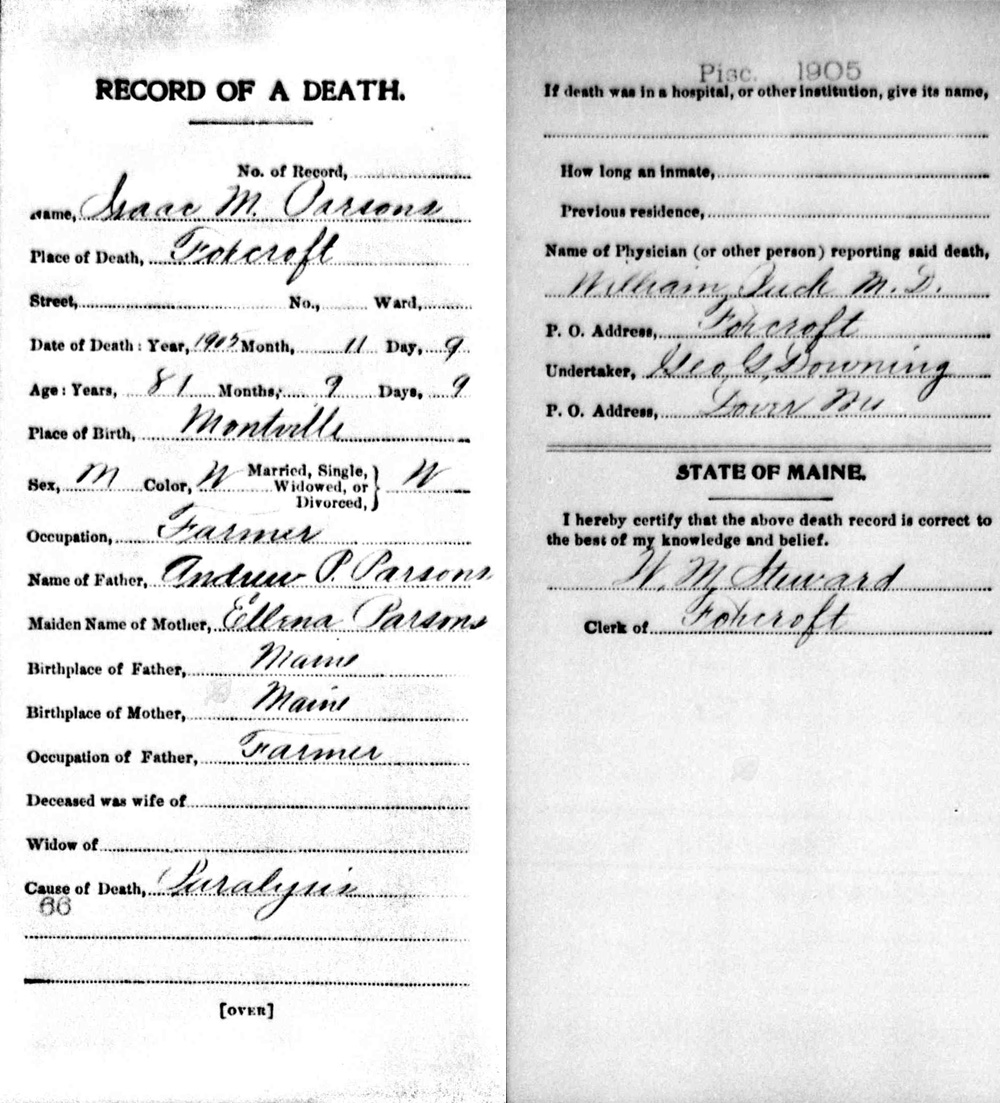 RECORD OF A DEATH.
No. of Record,
Name, Isaac M. Parsons
Place of Death, Foxcroft
Street, No., Ward,
Date of Death: Year, 1905 Month, 11 Day, 9
Age: Years, 81 Months, 9 Days, 9
Place of Birth, Montville
Sex, M Color, W Married, Single, Widowed, or Divorced, } W
Occupation, Farmer
Name of Father, Andrew P. Parsons
Maiden Name of Mother, Ellena Parsons
Birthplace of Father, Maine
Birthplace of Mother, Maine
Occupation of Father, Farmer
Deceased was wife of
Widow of
Cause of Death, Paralysis
66
[OVER]
Pisc. 1905
If death was in a hospital, or other institution, give its name,
How long an inmate,
Previous residence,
Name of Physician (or other person) reporting said death,
William Buck M.D.
P. O. Address, Foxcroft
Undertaker, Geo G Downing
P. O. Address, Dover Me
STATE OF MAINE.
I hereby certify that the above death record is correct to
the best of my knowledge and belief.
W. M. Steward
Clerk of Foxcroft